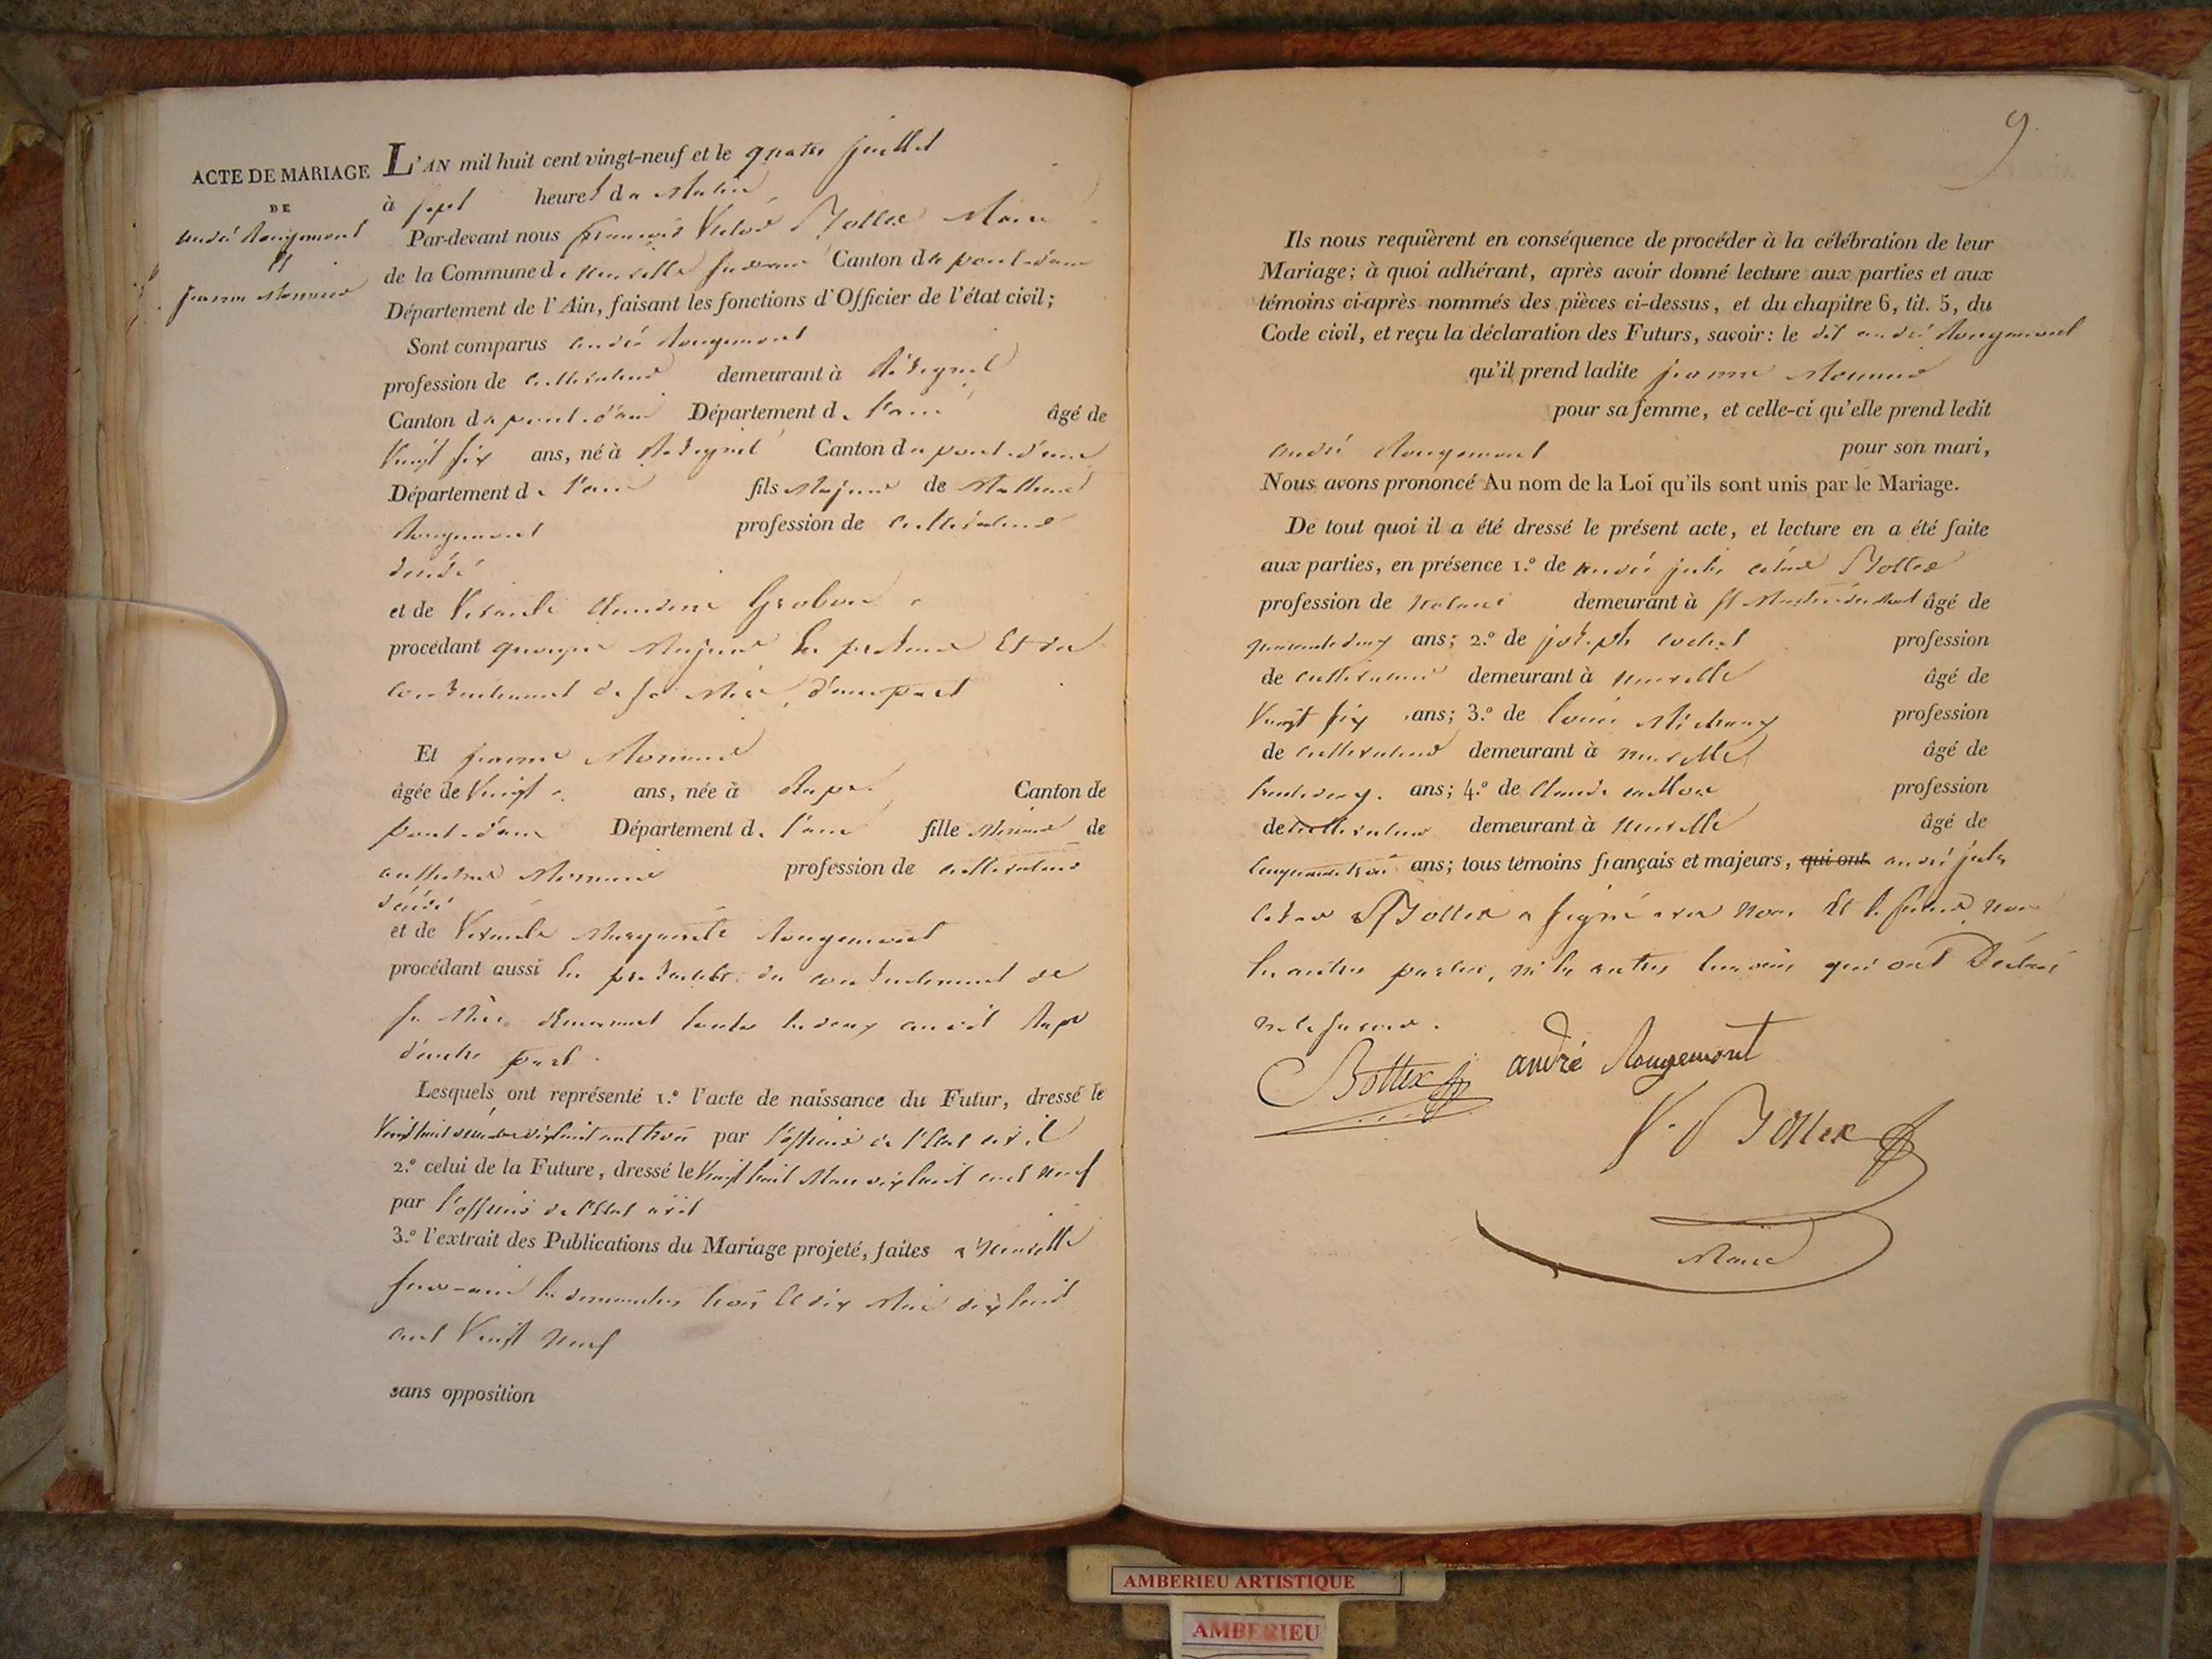 ACTE DE MARIAGE
DE
andré Rougemont
et
jeanne Monnier
L'AN mil huit cent vingt-neuf et le quatre juillet
à sept heures du Matin
Par-devant nous françois Victor Bottex Maire
de la Commune de neuville sur ain Canton de pont-d'ain
Département de l'Ain, faisant les fonctions d'Officier de l'état civil;
Sont comparus andré Rougemont
profession de cultivateur demeurant à
Canton de pont-d'ain Département de l'ain âgé de
Vingt six ans, né à Canton de pont-d'ain
Département de l'ain fils Majeur de
Rougemont profession de cultivateur
décédé
et de Vivante Claudine
procédant quoique Majeur
consentement de sa Mère, d'une part
Et jeanne Monnier
âgée de Vingt ans, née à Canton de
pont-d'ain Département de l'ain fille Mineure de
anthelme Monnier profession de cultivateur
décédé
et de Vivante Marguerite Rougemont
procédant aussi du consentement de
sa Mère demeurant toutes les deux
d'autre part.
Lesquels ont représenté 1.º l'acte de naissance du Futur, dressé le
dix huit cent trois par l'officier de l'Etat civil
2.º celui de la Future, dressé le Vingt huit Mars dix huit cent neuf
par l'officier de l'Etat civil
3.º l'extrait des Publications du Mariage projeté, faites a Neuville
sur-ain les dimanches trois et dix Mai dix huit
cent Vingt neuf
sans opposition
9
Ils nous requièrent en conséquence de procéder à la célébration de leur
Mariage; à quoi adhérant, après avoir donné lecture aux parties et aux
témoins ci-après nommés des pièces ci-dessus, et du chapitre 6, tit. 5, du
Code civil, et reçu la déclaration des Futurs, savoir: le dit andré Rougemont
qu'il prend ladite jeanne Monnier
pour sa femme, et celle-ci qu'elle prend ledit
andré Rougemont pour son mari,
Nous avons prononcé Au nom de la Loi qu'ils sont unis par le Mariage.
De tout quoi il a été dressé le présent acte, et lecture en a été faite
aux parties, en présence 1.º de andré jules césar Bottex
profession de Notaire demeurant à St Martin du Mont âgé de
quarante deux ans; 2.º de joseph profession
de cultivateur demeurant à neuville âgé de
Vingt six ans; 3.º de louis profession
de cultivateur demeurant à neuville âgé de
trente deux ans; 4.º de Claude profession
de cultivateur demeurant à neuville âgé de
cinquante trois ans; tous témoins français et majeurs, qui ont andré jules
césar Bottex a signé avec nous Et le futur non
les autres parties, ni les autres témoins qui ont Déclaré
ne le savoir.
Bottex andré Rougemont
V. Bottex
Maire
AMBERIEU ARTISTIQUE
AMBERIEU